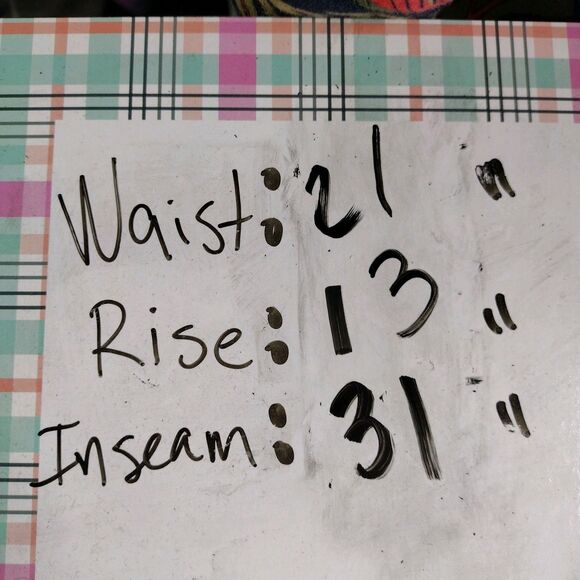 Waist: 21 "
Rise: 13 "
Inseam: 31 "